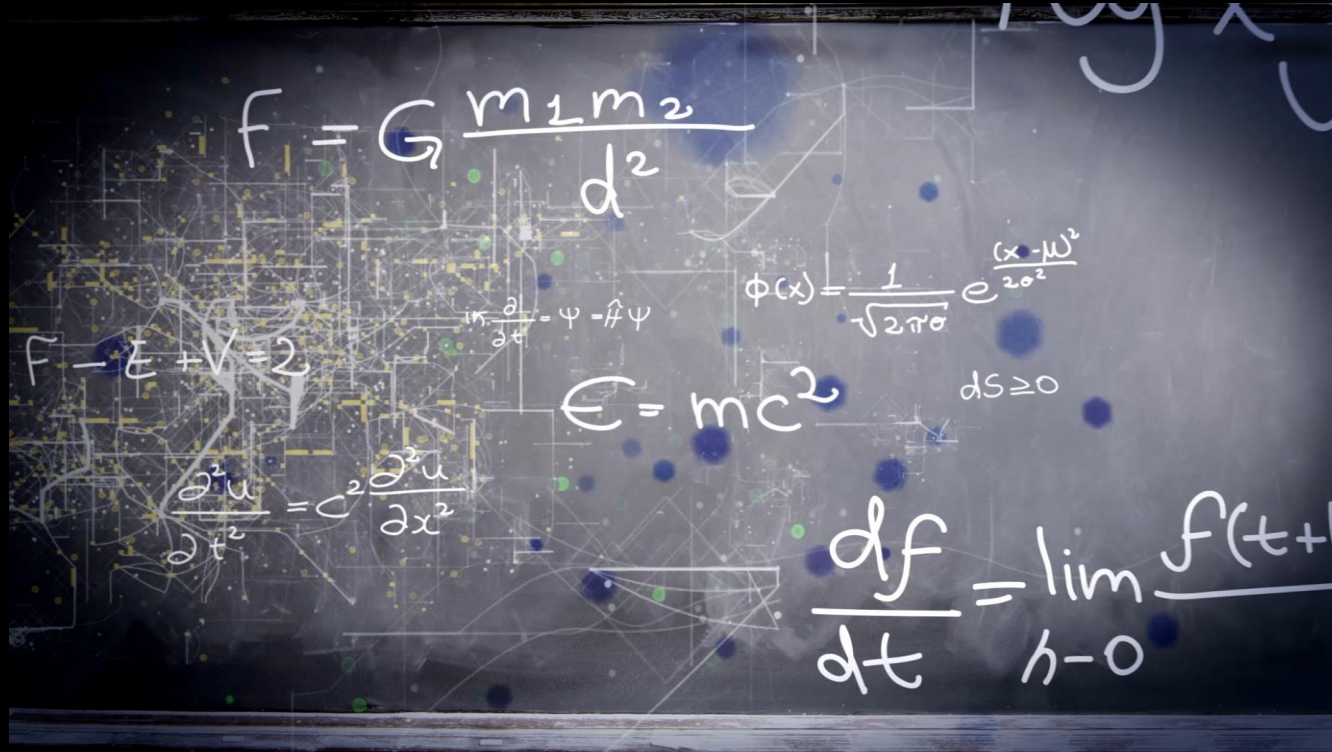 log x y
F = G m1 m2 / d²
Φ(x) = 1 / √2πσ e (x - μ)² / 2σ²
∂ / ∂t = Ψ = Ĥ Ψ
F - E + V = 2
E = mc²
dS ≥ 0
∂²u / ∂t² = c² ∂²u / ∂x²
df / dt = lim h-0 f(t+